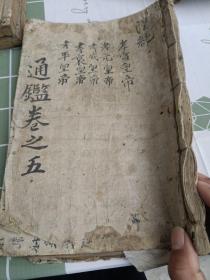 孝宣皇帝
孝元皇帝
孝成皇帝
孝哀皇帝
孝平皇帝
通鑑卷之五